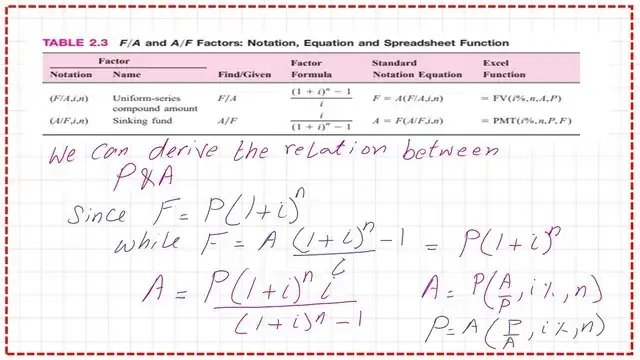 TABLE 2.3 F/A and A/F Factors: Notation, Equation and Spreadsheet Function
Factor Factor Standard Excel
Notation Name Find/Given Formula Notation Equation Function
(F/A,i,n) Uniform-series compound amount F/A ((1 + i)^n − 1)/i F = A(F/A,i,n) = FV(i%,n,A,P)
(A/F,i,n) Sinking fund A/F i/((1 + i)^n − 1) A = F(A/F,i,n) = PMT(i%,n,P,F)
We can derive the relation between
P&A
Since F = P(1+i)^n
while F = A ((1+i)^n - 1)/i = P(1+i)^n
A = P(1+i)^n i/((1+i)^n - 1) A = P(A/P, i%, n)
P = A(P/A, i%, n)